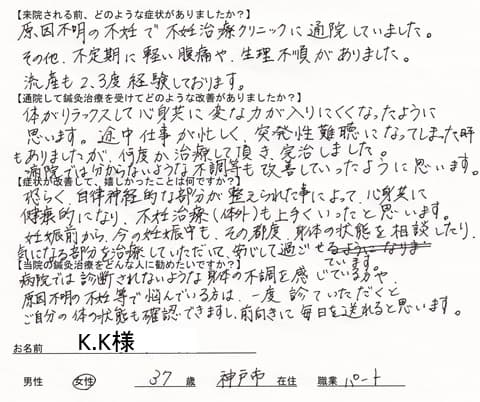 【来院される前、どのような症状がありましたか？】
原因不明の不妊で不妊治療クリニックに通院していました。
その他、不定期に軽い腹痛や、生理不順がありました。
流産も2、3度経験しております。
【通院して鍼灸治療を受けてどのような改善がありましたか？】
体がリラックスして心身共に変な力が入りにくくなったように
思います。途中仕事が忙しく、突発性難聴になってしまった時
もありましたが、何度か治療して頂き、完治しました。
病院では分からないような不調等も改善していったように思います。
【症状が改善して、嬉しかったことは何ですか？】
恐らく、自律神経的な部分が整えられた事によって、心身共に
健康的になり、不妊治療（体外）も上手くいったと思います。
妊娠前から、今の妊娠中も、その都度、身体の状態を相談したり、
気になる部分を治療していただいて、安心して過ごせ
ています。
【当院の鍼灸治療をどんな人に勧めたいですか？】
病院では診断されないような身体の不調を感じている方や、
原因不明の不妊等で悩んでいる方は、一度診ていただくと
ご自分の体の状態も確認できますし、前向きに毎日を送れると思います。
お名前 K.K様
男性 女性 37 歳 神戸市 在住 職業 パート